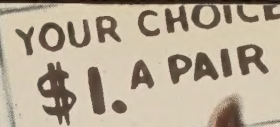 YOUR CHOICE
$1. A PAIR